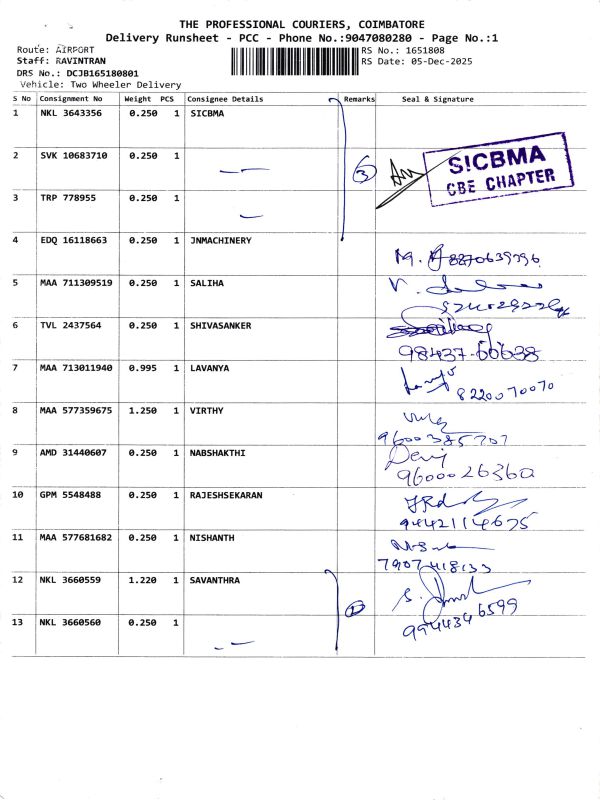 THE PROFESSIONAL COURIERS, COIMBATORE
Delivery Runsheet - PCC - Phone No.:9047080280 - Page No.:1
Route: AIRPORT RS No.: 1651808
Staff: RAVINTRAN RS Date: 05-Dec-2025
DRS No.: DCJB165180801
Vehicle: Two Wheeler Delivery
S No Consignment No Weight PCS Consignee Details Remarks Seal & Signature
1 NKL 3643356 0.250 1 SICBMA
2 SVK 10683710 0.250 1 3 SICBMA
CBE CHAPTER
3 TRP 778955 0.250 1
4 EDQ 16118663 0.250 1 JNMACHINERY
5 MAA 711309519 0.250 1 SALIHA
6 TVL 2437564 0.250 1 SHIVASANKER
98437-60638
7 MAA 713011940 0.995 1 LAVANYA
8220070070
8 MAA 577359675 1.250 1 VIRTHY
9600385707
9 AMD 31440607 0.250 1 NABSHAKTHI
9600026360
10 GPM 5548488 0.250 1 RAJESHSEKARAN
9442114675
11 MAA 577681682 0.250 1 NISHANTH
7907418133
12 NKL 3660559 1.220 1 SAVANTHRA
2
9944346599
13 NKL 3660560 0.250 1